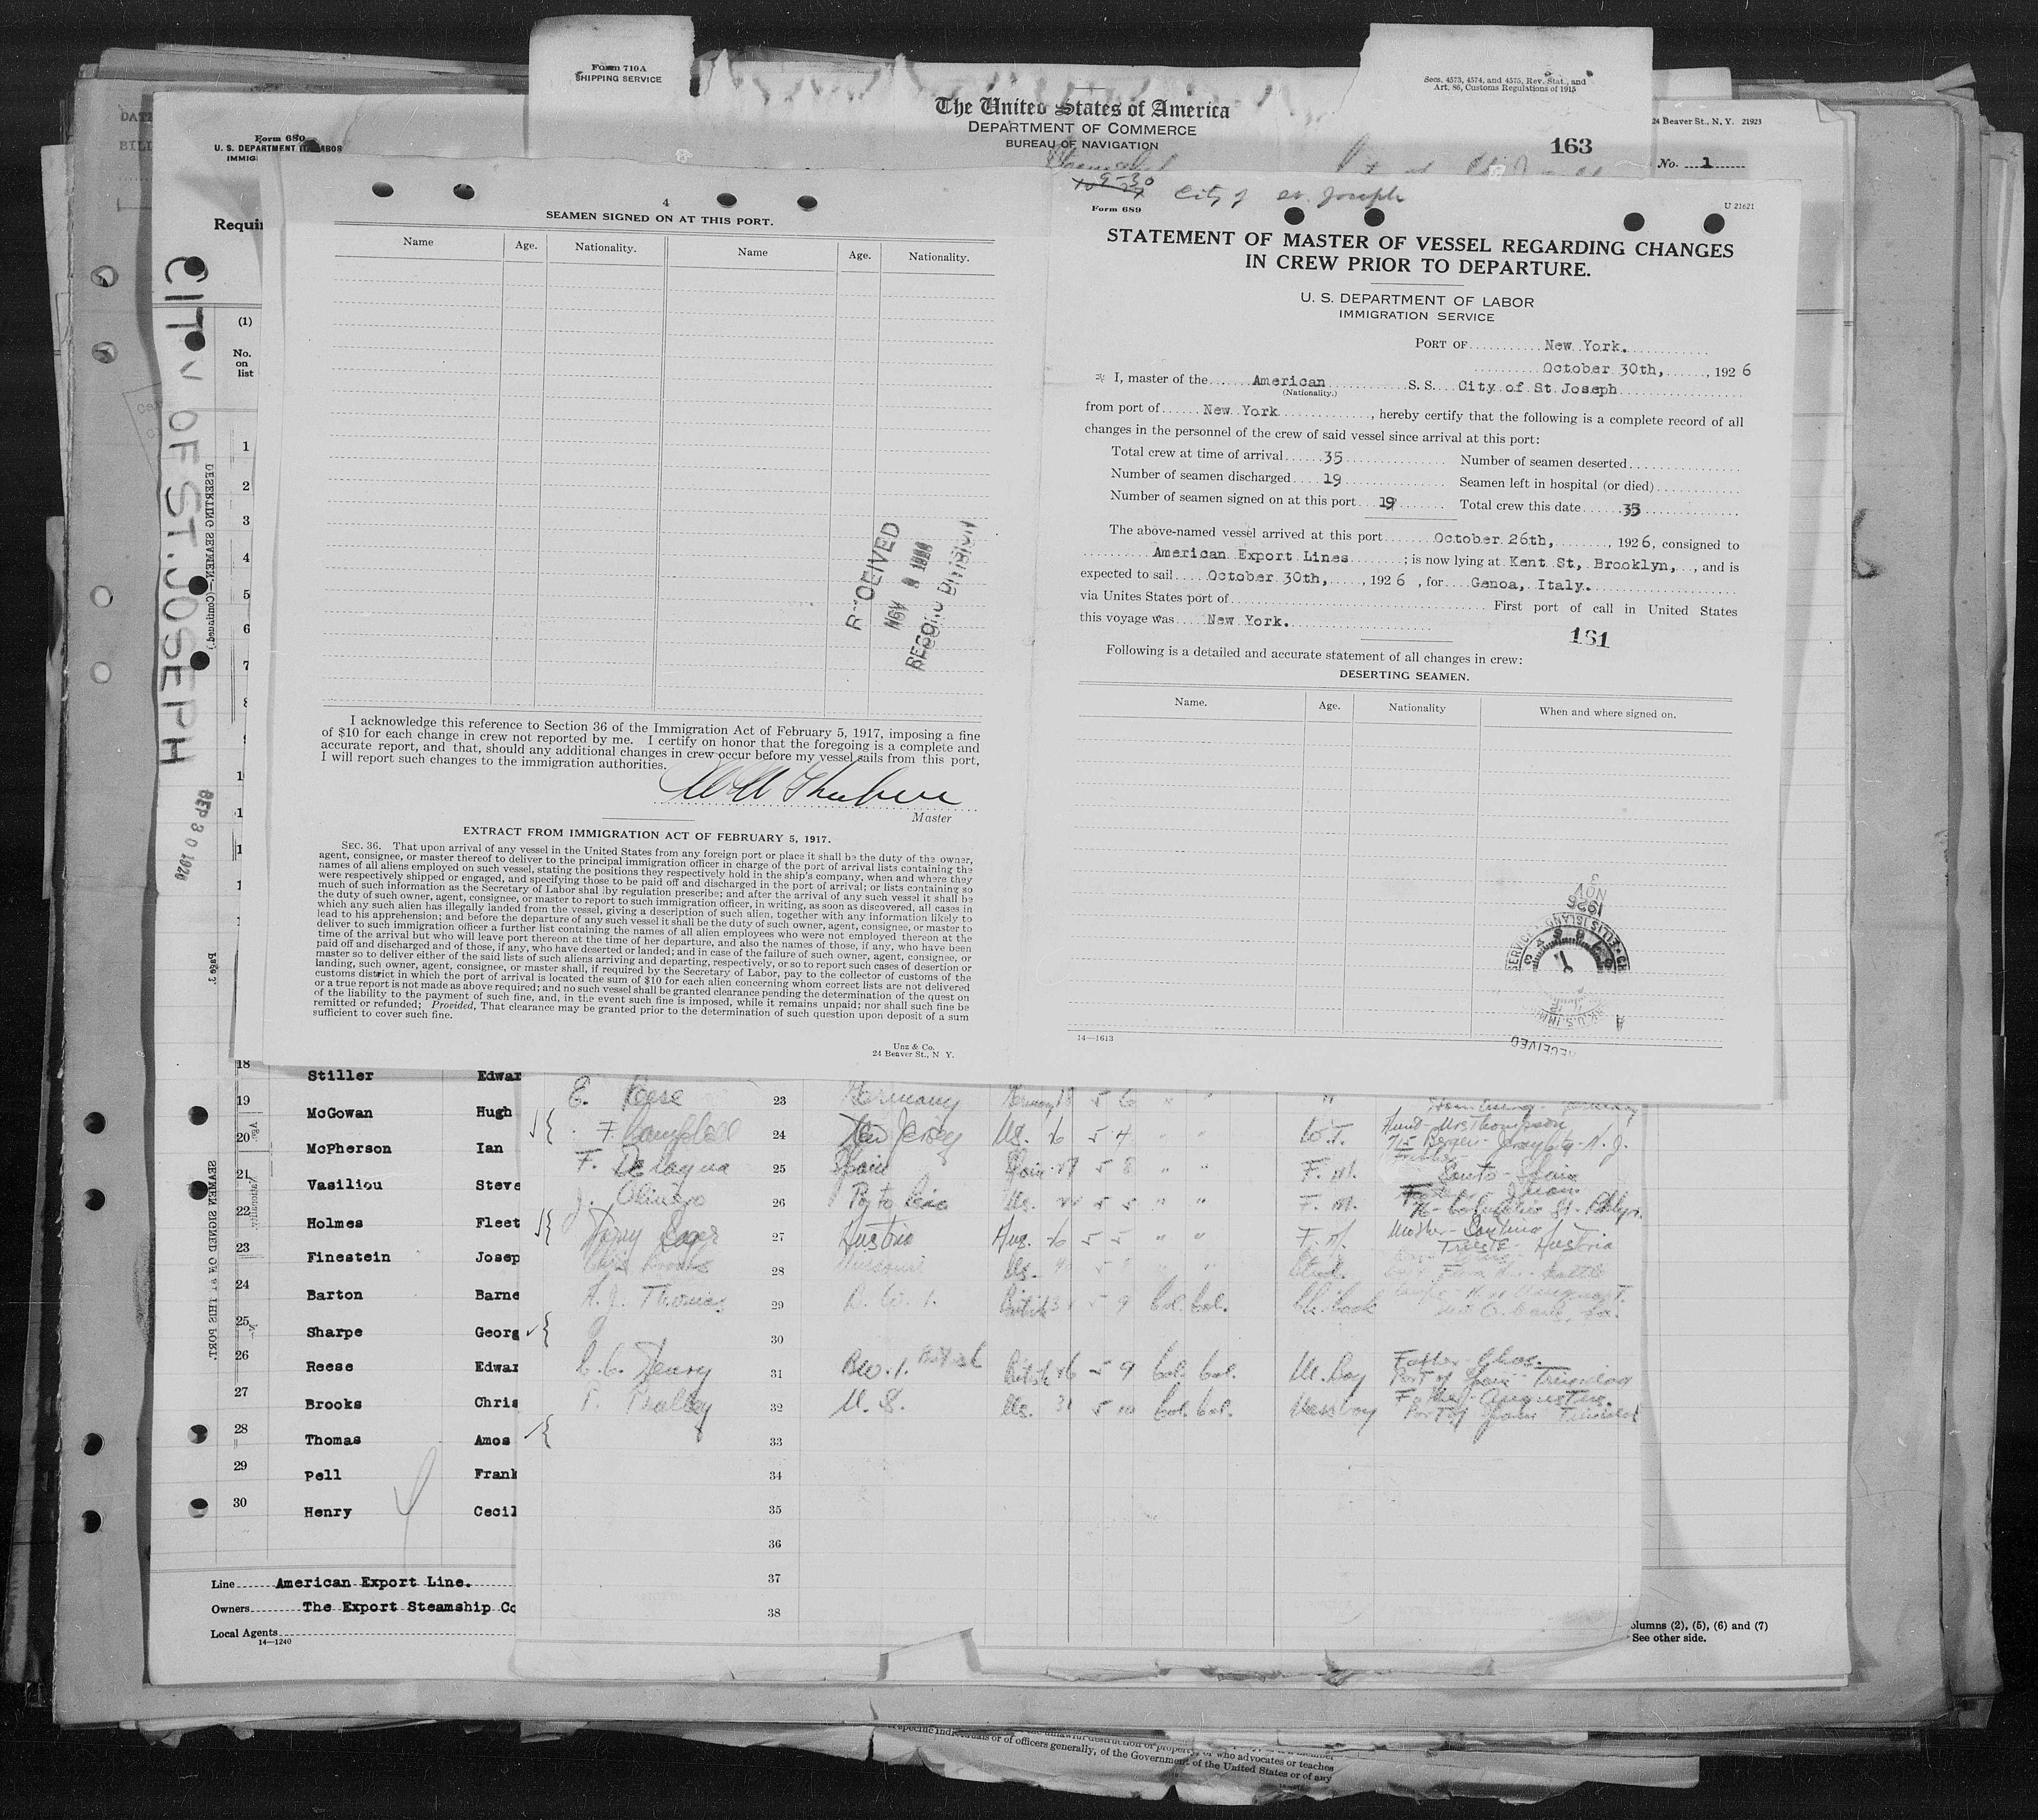 Form 710A
SHIPPING SERVICE
Secs. 4573, 4574, and 4575, Rev. Stat., and
Art. 86, Customs Regulations of 1915
The United States of America
DEPARTMENT OF COMMERCE
BUREAU OF NAVIGATION
163
24 Beaver St., N. Y. 21923
No. 1
Form 680
U. S. DEPARTMENT OF LABOR
IMMIG
Requir
CITY OF ST. JOSEPH
SEP 30 1926
DESERTING SEAMEN—(Continued.)
Page 2
SEAMEN SIGNED ON AT THIS PORT.
(1)
No.
on
list
1
2
3
4
5
6
7
8
4
SEAMEN SIGNED ON AT THIS PORT.
Name Age. Nationality. Name Age. Nationality.
RECEIVED
NOV 8 1926
RECORD DIVISION
I acknowledge this reference to Section 36 of the Immigration Act of February 5, 1917, imposing a fine
of $10 for each change in crew not reported by me. I certify on honor that the foregoing is a complete and
accurate report, and that, should any additional changes in crew occur before my vessel sails from this port,
I will report such changes to the immigration authorities.
Master
EXTRACT FROM IMMIGRATION ACT OF FEBRUARY 5, 1917.
SEC. 36. That upon arrival of any vessel in the United States from any foreign port or place it shall be the duty of the owner,
agent, consignee, or master thereof to deliver to the principal immigration officer in charge of the port of arrival lists containing the
names of all aliens employed on such vessel, stating the positions they respectively hold in the ship's company, when and where they
were respectively shipped or engaged, and specifying those to be paid off and discharged in the port of arrival; or lists containing so
much of such information as the Secretary of Labor shal lby regulation prescribe; and after the arrival of any such vessel it shall be
the duty of such owner, agent, consignee, or master to report to such immigration officer, in writing, as soon as discovered, all cases in
which any such alien has illegally landed from the vessel, giving a description of such alien, together with any information likely to
lead to his apprehension; and before the departure of any such vessel it shall be the duty of such owner, agent, consignee, or master to
deliver to such immigration officer a further list containing the names of all alien employees who were not employed thereon at the
time of the arrival but who will leave port thereon at the time of her departure, and also the names of those, if any, who have been
paid off and discharged and of those, if any, who have deserted or landed; and in case of the failure of such owner, agent, consignee, or
master so to deliver either of the said lists of such aliens arriving and departing, respectively, or so to report such cases of desertion or
landing, such owner, agent, consignee, or master shall, if required by the Secretary of Labor, pay to the collector of customs of the
customs district in which the port of arrival is located the sum of $10 for each alien concerning whom correct lists are not delivered
or a true report is not made as above required; and no such vessel shall be granted clearance pending the determination of the quest on
of the liability to the payment of such fine, and, in the event such fine is imposed, while it remains unpaid; nor shall such fine be
remitted or refunded; Provided, That clearance may be granted prior to the determination of such question upon deposit of a sum
sufficient to cover such fine.
Unz & Co.
24 Beaver St., N Y.
9-30 City of St. Joseph
Form 689
U 21621
STATEMENT OF MASTER OF VESSEL REGARDING CHANGES
IN CREW PRIOR TO DEPARTURE.
U. S. DEPARTMENT OF LABOR
IMMIGRATION SERVICE
PORT OF New York.
October 30th, , 1926
I, master of the American S. S. City of St. Joseph
(Nationality.)
from port of New York , hereby certify that the following is a complete record of all
changes in the personnel of the crew of said vessel since arrival at this port:
Total crew at time of arrival 35 Number of seamen deserted
Number of seamen discharged 19 Seamen left in hospital (or died)
Number of seamen signed on at this port 19 Total crew this date 35
The above-named vessel arrived at this port October 26th, , 1926, consigned to
American Export Lines ; is now lying at Kent St, Brooklyn, , and is
expected to sail October 30th, , 1926 , for Genoa, Italy.
via Unites States port of First port of call in United States
this voyage was New York.
161
Following is a detailed and accurate statement of all changes in crew:
DESERTING SEAMEN.
Name. Age. Nationality When and where signed on.
1926
NOV
3
RECEIVED
14—1613
18 Stiller Edwar
19 McGowan Hugh
20 McPherson Ian
21 Vasiliou Steve
22 Holmes Fleet
23 Finestein Josep
24 Barton Barne
25 Sharpe Georg
26 Reese Edwar
27 Brooks Chris
28 Thomas Amos
29 Pell Frank
30 Henry Cecil
E. Reese 23 Germany 5 6
F. Campbell 24 New Jersey US. 5 4 " " W.T. Mrs Thompson
F. 25 Spain Spain 5 8 " " F. M. Spain
J. 26 Porto Rico US. 5 5 " " F. M.
27 Austria 5 5 " " F. M. Mother
Trieste - Austria
Chris Brooks 28 Missouri US. " "
A. J. Thomas 29 B. W. I. British 5 9 Col. Col. Ch. Cook
30
C. C. Henry 31 B.W.I. British British 26 5 9 Col. Col. M. Boy Father - Chas.
Port of Spain Trinidad
P. 32 U. S. US. 31 5 10 Col. Col. Mess boy Father - Augustus.
Port of Spain Trinidad
33
34
35
36
37
38
Line American Export Line.
Owners The Export Steamship Co
Local Agents
14—1240
olumns (2), (5), (6) and (7)
See other side.
who advocates or teaches
or of officers generally, of the Government of the United States or of any